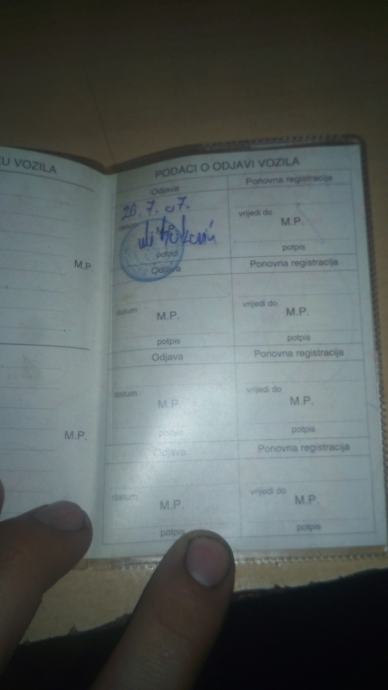 U VOZILA
M.P.
M.P.
PODACI O ODJAVI VOZILA
Odjava Ponovna registracija
20. 7. 07.
vrijedi do
M.P.
potpis potpis
Odjava Ponovna registracija
datum vrijedi do
M.P. M.P.
potpis potpis
Odjava Ponovna registracija
datum vrijedi do
M.P. M.P.
potpis potpis
Odjava Ponovna registracija
datum vrijedi do
M.P. M.P.
potpis potpis